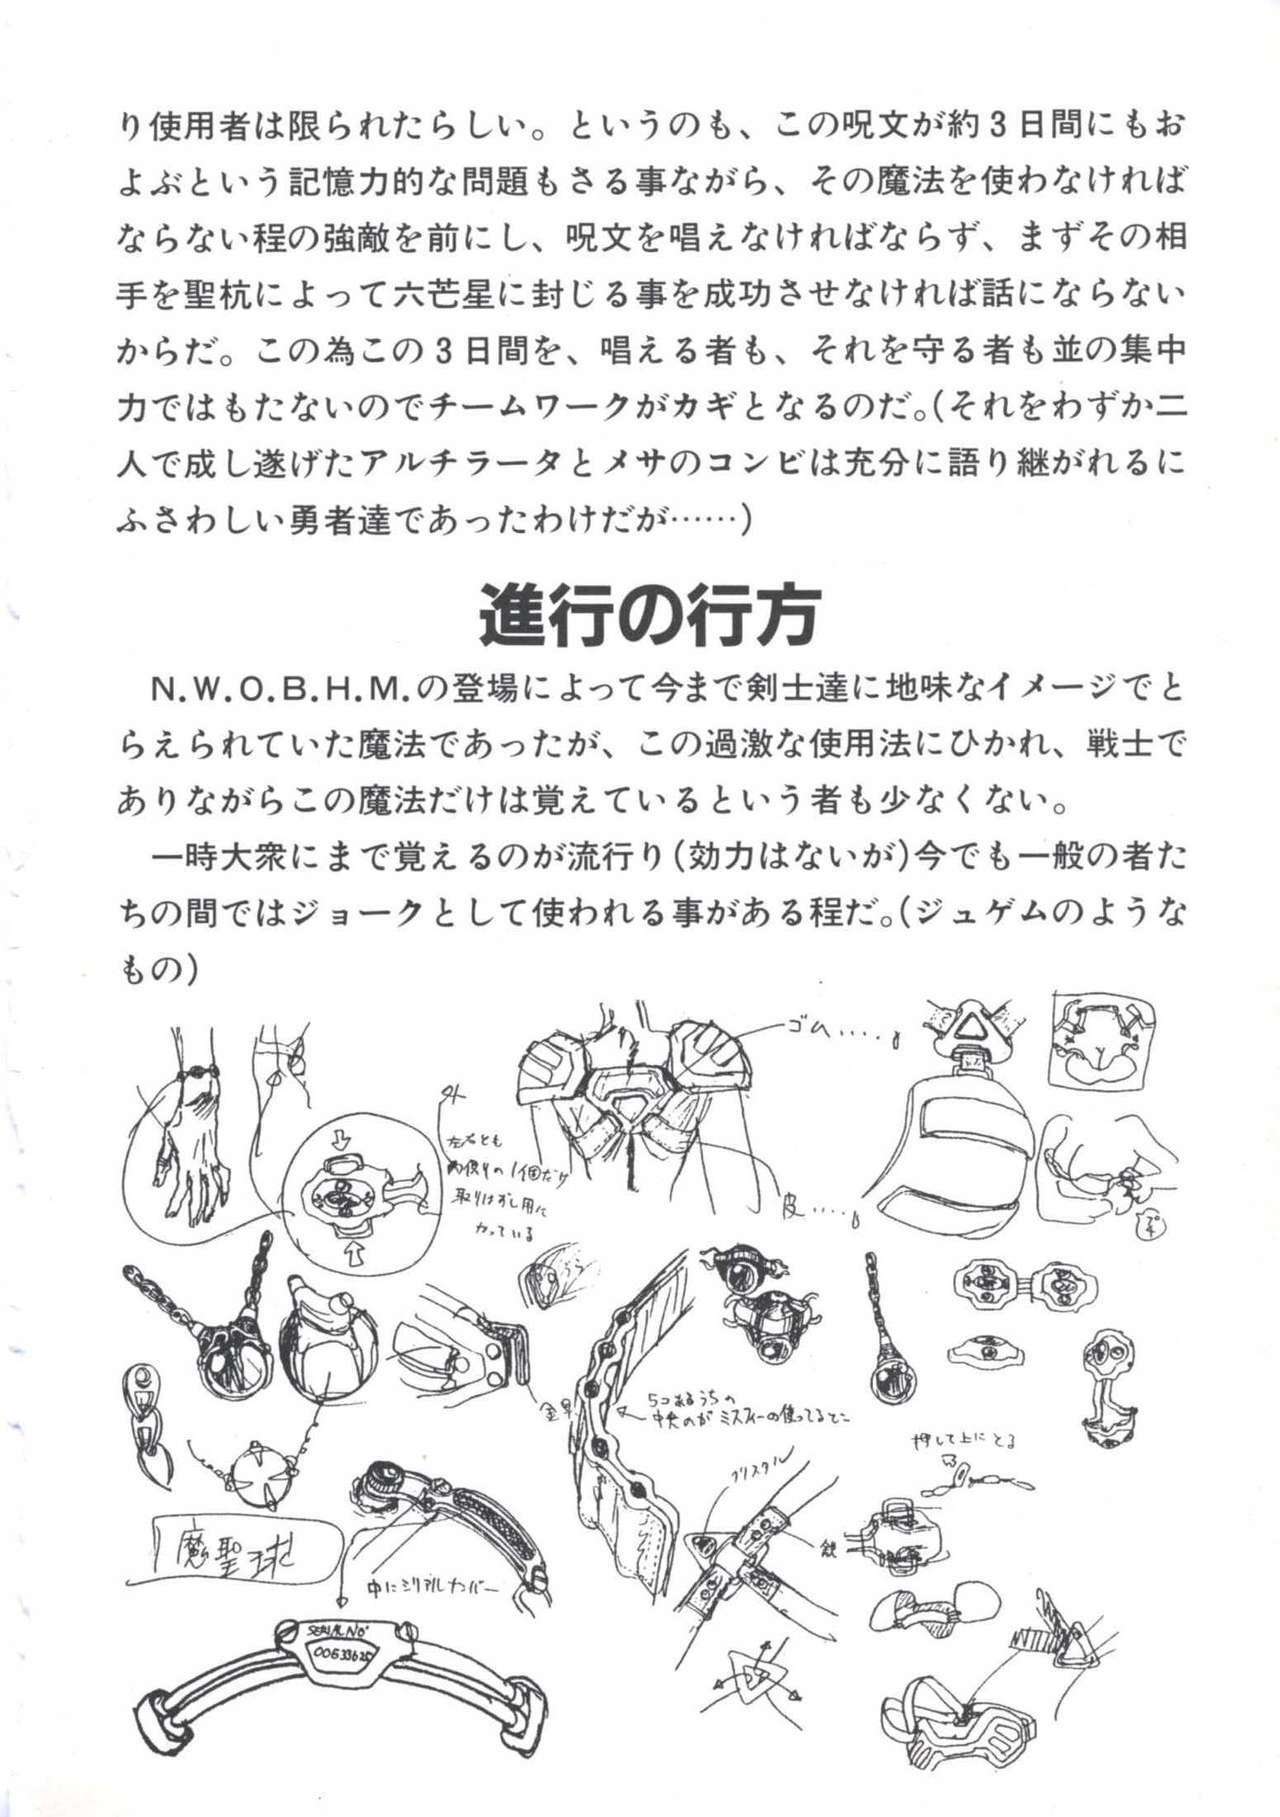 り使用者は限られたらしい。というのも、この呪文が約3日間にもお
よぶという記憶力的な問題もさる事ながら、その魔法を使わなければ
ならない程の強敵を前にし、呪文を唱えなければならず、まずその相
手を聖杭によって六芒星に封じる事を成功させなければ話にならない
からだ。この為この3日間を、唱える者も、それを守る者も並の集中
力ではもたないのでチームワークがカギとなるのだ。(それをわずか二
人で成し遂げたアルチラータとメサのコンビは充分に語り継がれるに
ふさわしい勇者達であったわけだが……)
進行の行方
N.W.O.B.H.M.の登場によって今まで剣士達に地味なイメージでと
らえられていた魔法であったが、この過激な使用法にひかれ、戦士で
ありながらこの魔法だけは覚えているという者も少なくない。
一時大衆にまで覚えるのが流行り(効力はないが)今でも一般の者た
ちの間ではジョークとして使われる事がある程だ。(ジュゲムのような
もの)
ゴム....
外
左右とも
両側りの1個だけ
取りはずし用に
なっている
皮....
うら
5つあるうちの
中央のが ミスティーの使ってるとこ
押して上にとる
クリスタル
魔聖球
中にシリアルナンバー
SERIAL No